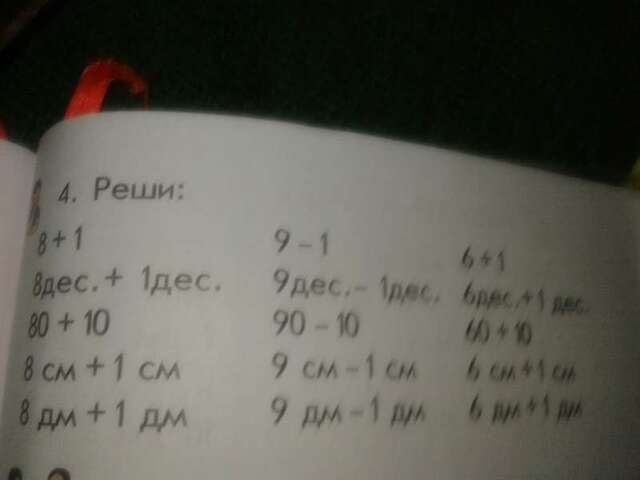 4. Реши:
8 + 1 9 - 1 6 + 1
8дес. + 1дес. 9дес. - 1дес. 6дес. + 1 дес.
80 + 10 90 - 10 60 + 10
8 см + 1 см 9 см - 1 см 6 см + 1 см
8 дм + 1 дм 9 дм - 1 дм 6 дм + 1 дм